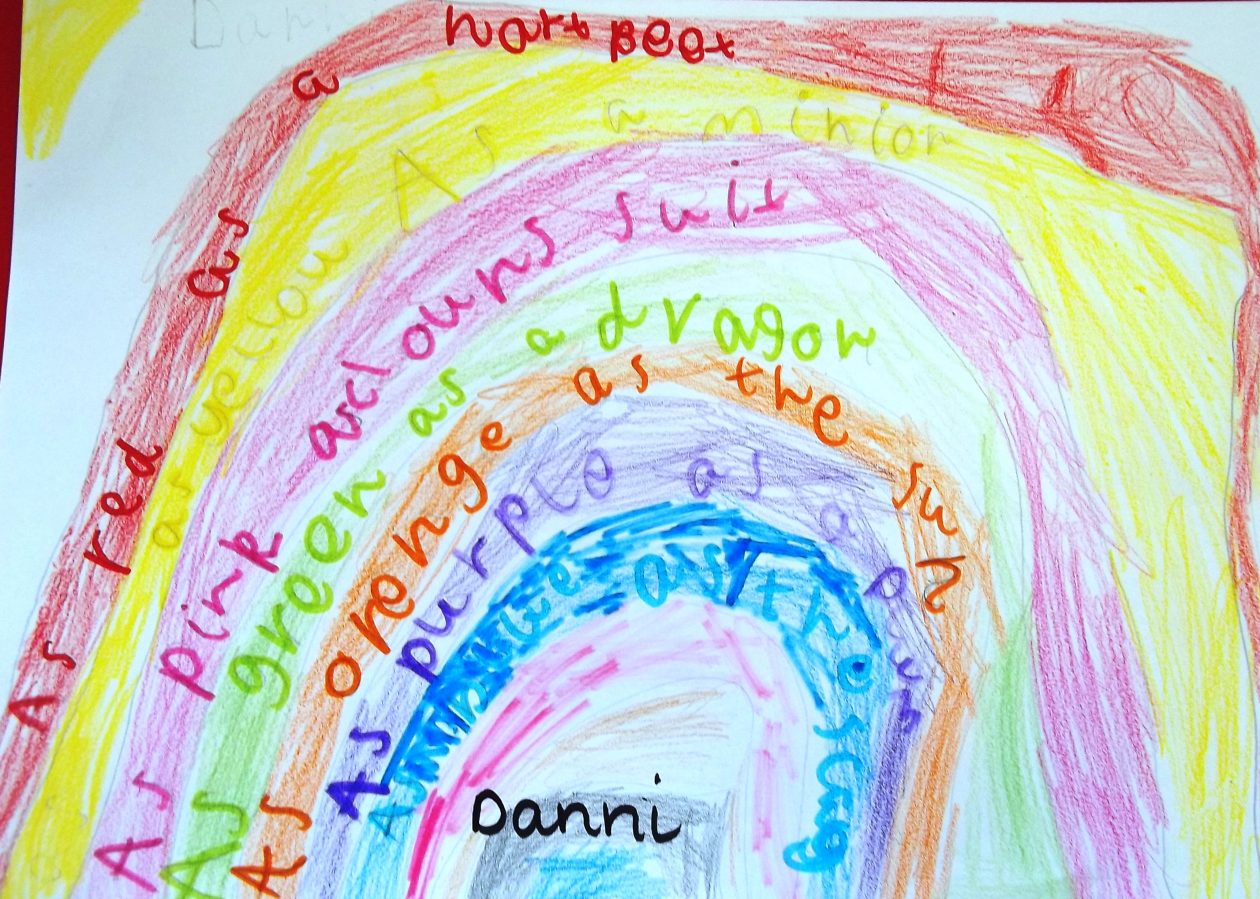 As red as a hart Beat
as yellow As a minion
As pink as clouns suit
As green as a dragon
As orenge as the sun
As purple as a
As blue as the
Danni